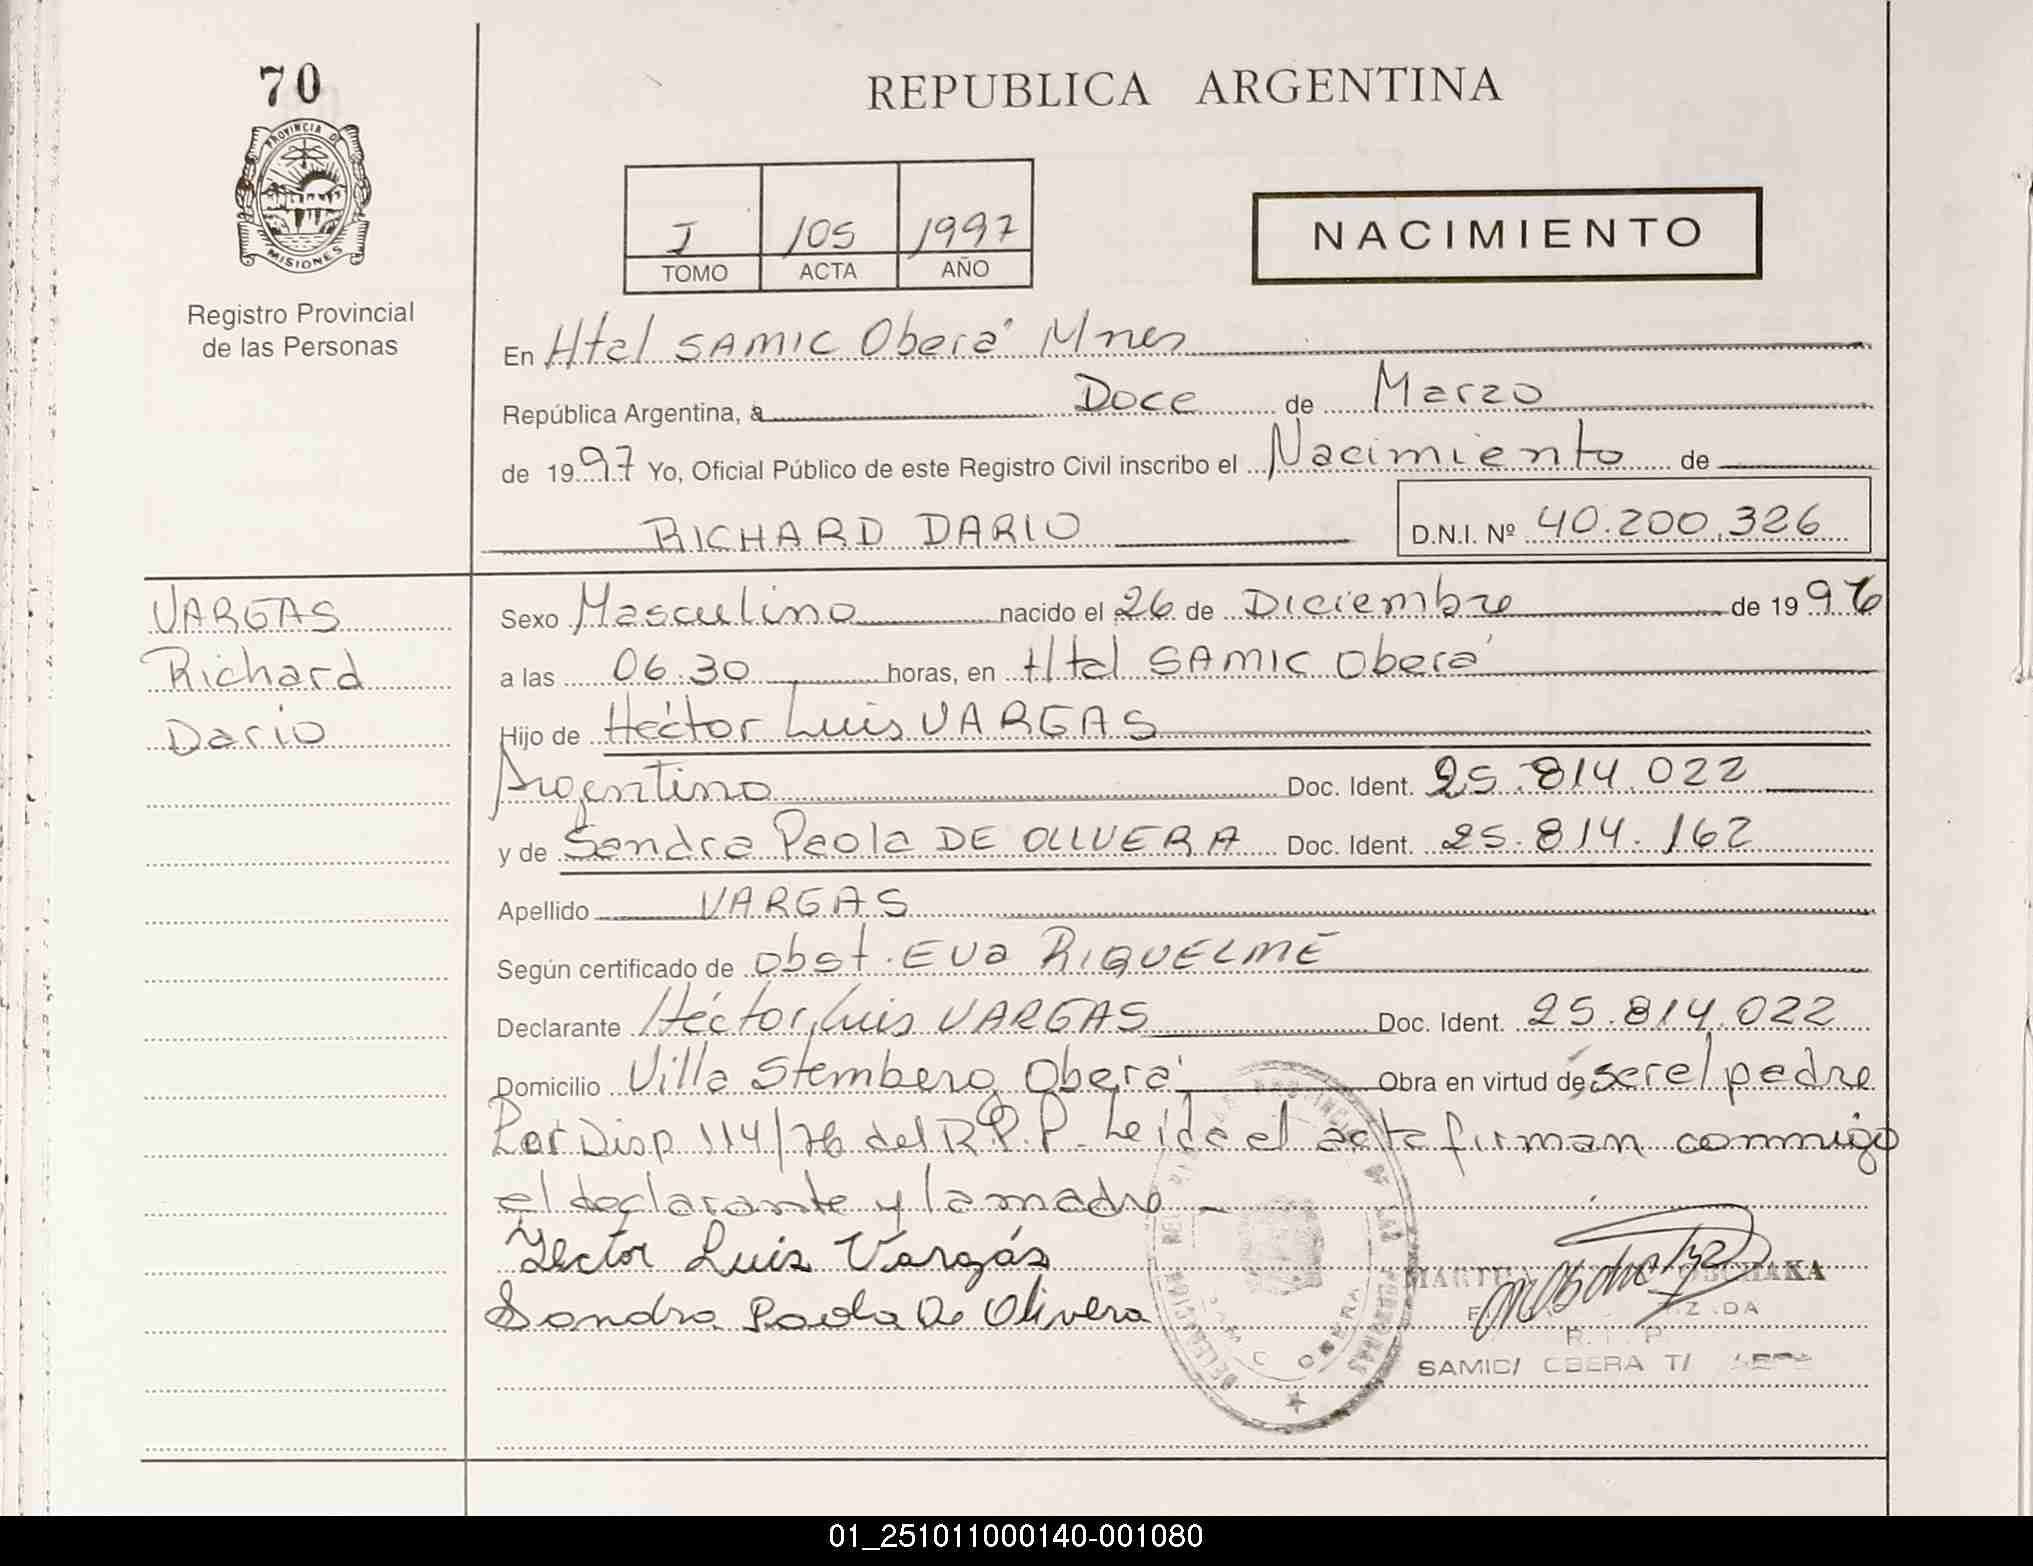 70
PROVINCIA DE
MISIONES
Registro Provincial
de las Personas
REPUBLICA ARGENTINA
I 105 1997
TOMO ACTA AÑO
NACIMIENTO
En Htal SAMIC Oberá Mnes
República Argentina, a Doce de Marzo
de 1997 Yo, Oficial Público de este Registro Civil inscribo el Nacimiento de
RICHARD DARIO D.N.I. Nº 40.200.326
VARGAS
Richard
Dario
Sexo Masculino nacido el 26 de Diciembre de 1996
a las 06.30 horas, en Htal SAMIC Oberá
Hijo de Héctor Luis VARGAS
Argentino Doc. Ident. 25.814.022
y de Sandra Paola DE OLIVERA Doc. Ident. 25.814.162
Apellido VARGAS
Según certificado de obst. Eva RIQUELME
Declarante Héctor Luis VARGAS Doc. Ident. 25.814.022
Domicilio Villa Stemberg Oberá Obra en virtud de ser el padre
Por Disp 114/76 del R.P.P. Leída el acta firman conmigo
el declarante y la madre
Hector Luis Vargás
Sandra Paola De Olivera
DELEGACION DEL REGISTRO PROVINCIAL DE LAS PERSONAS
SAMIC OBERA
R. P.
SAMIC/ OBERA T/
01_251011000140-001080